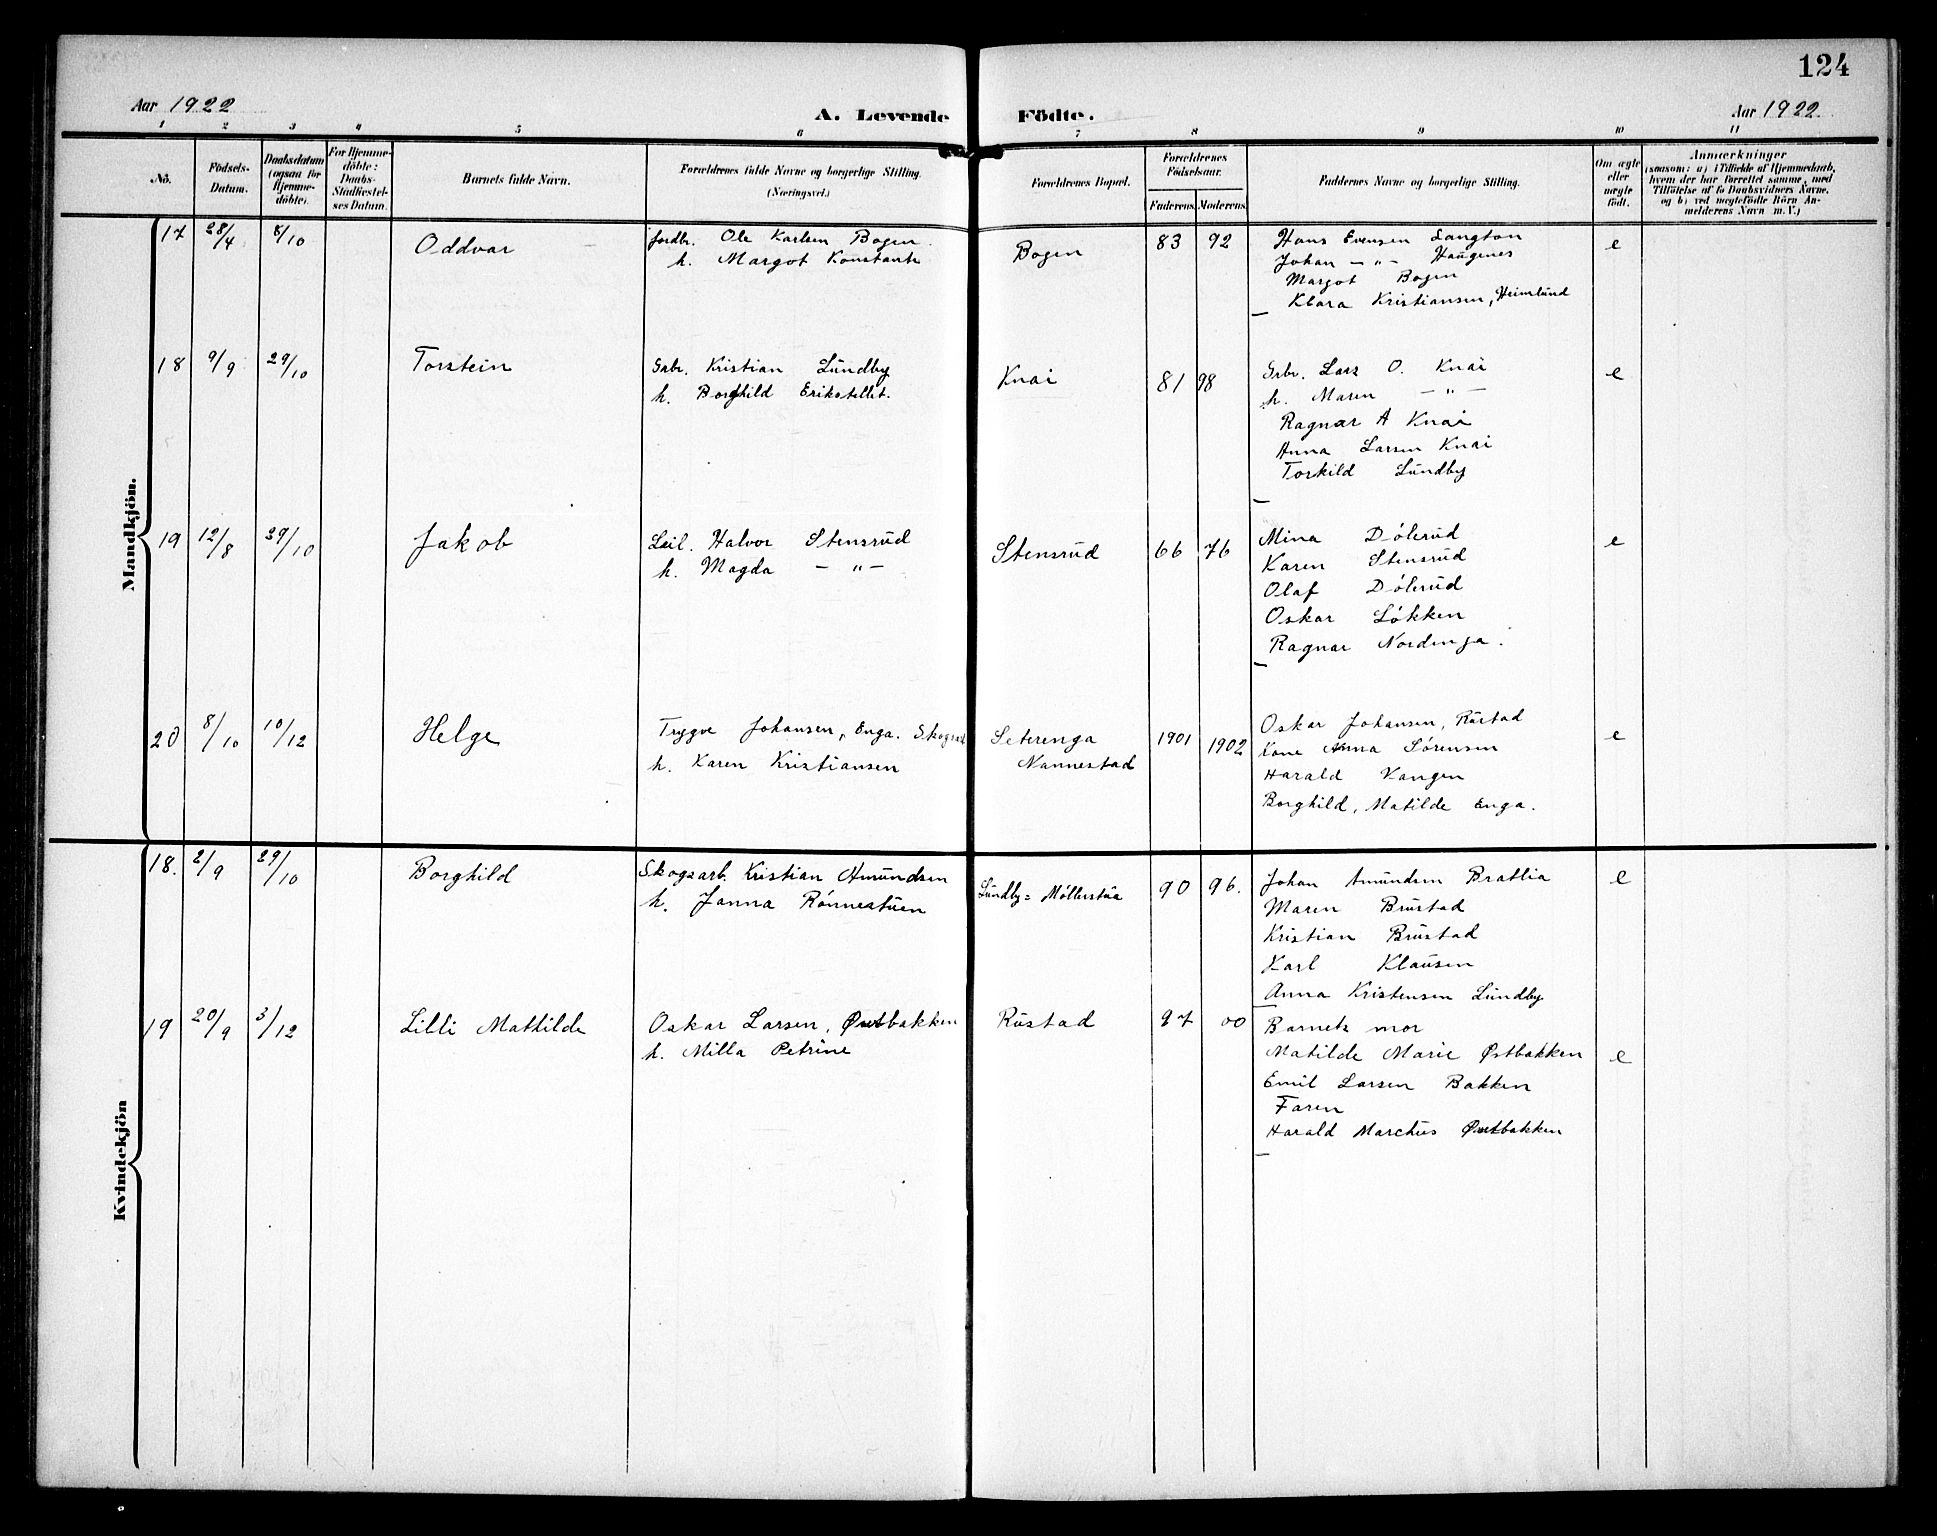 124
Aar 1922
A. Levende Födte.
Aar 1922.
1 2 3 4 5 6 7 8 9 10 11
No.
Födsels-
Datum.
Daabsdatum
(ogsaa for
Hjemme-
döbte).
For Hjemme-
döbte:
Daabs-
Stadfæstel-
ses Datum.
Barnets fulde Navn.
Forældrenes fulde Navne og borgerlige Stilling.
(Næringsvei.)
Forældrenes Bopæl.
Forældrenes
Födselsaar.
Faderens. Moderens.
Faddernes Navne og borgerlige Stilling.
Om ægte
eller
uægte
födt.
Anmærkninger
(saasom: a) i Tilfælde af Hjemmedaab,
hvem der har forrettet samme, med
Tilföielse af to Daabsvidners Navne,
og b) ved uægtefödte Börn An-
melderens Navn m. V.)
Mandkjön.
17 28/4 8/10 Oddvar
Jordbr. Ole Karlsen Bogen.
h. Margot Konstante
Bogen 83 92
Hans Evensen Langton
Johan — „ — Haugenes
Margot Bogen
Klara Kristiansen, Heimlund
e
18 9/9 29/10 Torstein
Gabr. Kristian Lundby
h. Borghild Erikstellet.
Knai 81 98
Gabr. Lars O. Knai
h. Maren — „ —
Ragnar A Knai
Anna Larsen Knai
Torkild Lundby
e
19 12/8 29/10 Jakob
Leil. Halvor Stensrud
h. Magda — „ —
Stensrud 66 76
Mina Dólerud
Karen Stensrud
Olaf Dólerud
Oskar Lókken
Ragnar Nordenga.
e
20 8/10 10/12 Helge
Trygve Johansen, Enga. Skogsarb
h. Karen Kristiansen
Seterenga
Nannestad
1901 1902
Oskar Johansen, Rustad
Kone Anna Sórensen
Harald Vangen
Borghild, Matilde Enga.
e
Kvindekjön
18. 2/9 29/10 Borghild
Skogsarb. Kristian Amundsen
h. Janna Rónnestuen
Lundby= Móllerstua 90 96.
Johan Amundsen Bratlia
Maren Brustad
Kristian Brustad
Karl Klausen
Anna Kristensen Lundby
e
19 20/9 3/12 Lilli Mathilde
Oskar Larsen, Østbakken
h. Milla Petrine
Rustad 97 00
Barnets mor
Matilde Marie Østbakken
Emil Larsen Bakken
Faren
Harald Marchus Østbakken
e